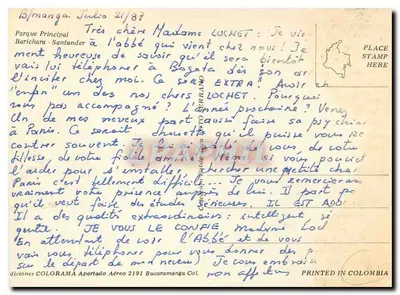 B/manga. Julio 21/87
Très chère Madame LOCHET: Je vie
Parque Principal
Barichara - Santander
à l'abbé qui vient chez nous! Je
ment heureuse de savoir qu'il sera bientôt
vais lui téléphoner à Bogota dès son arr
l'inviter chez moi. Ce sera EXTRA! Avoir ch
"enfin" un des nos chers LOCHET. Pourquoi
vous pas accompagné? L'année prochaine? Venez
Un de mes neveux part aussi faire sa psychia
à Paris. Ce serait chouette qu'il puisse vous re
contrer souvent. Je lui ai parlé de vous, de votre
de votre
si vous pouviez
l'aider pour s'installer, chercher une petite cham
Paris c'est tellement difficile... Je vous remercierai
vraiment votre présence auprès de lui. Il part pa
qu'il veut faire du études sérieuses. IL EST ADO
Il a des qualités extraordinaires: intelligent, si
gentil. JE VOUS LE CONFIE madame Loch
En attendant de voir l'Abbé et de vous
vais vous téléphoner pour vous donner des p
sur le départ de mon neveu! Je vous embrasse
mon affection
PLACE
STAMP
HERE
diciones COLORAMA Apartado Aéreo 2191 Bucaramanga Col.
PRINTED IN COLOMBIA